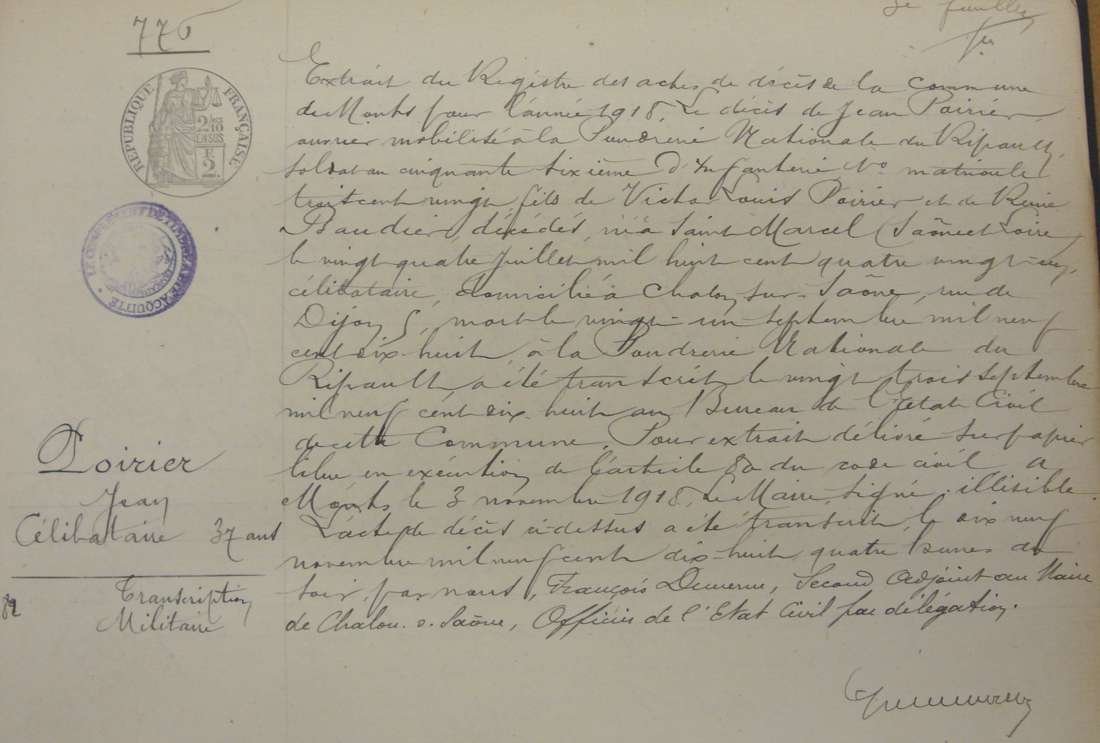 776
3e feuillet
RÉPUBLIQUE FRANÇAISE
2/10
EN SUS
2F
Extrait du Registre des actes de décès de la Commune
de Monts pour l'année 1918. Le décès de Jean Poirier
ouvrier mobilisé à la Poudrerie Nationale du Ripault,
soldat au cinquante sixième d'Infanterie No matricule
trois cent vingt fils de Victor Louis Poirier et de Reine
Baudier, décédés, né à Saint Marcel (Saône et Loire
le vingt quatre Juillet mil huit cent quatre vingt-un,
célibataire, domicilié à Chalon sur Saône, rue de
Dijon 5, mort le vingt un septembre mil neuf
cent dix huit, à la Poudrerie Nationale du
Ripault, a été transcrit le vingt trois septembre
mil neuf cent dix huit au Bureau de l'Etat Civil
de cette Commune. Pour extrait délivré sur papier
libre en exécution de l'article 80 du code civil a
Monts, le 3 novembre 1918. Le Maire, signé : illisible.
L'acte de décès ci-dessus a été transcrit, le dix neuf
novembre mil neuf cent dix-huit quatre heures du
soir, par nous, François Second Adjoint au Maire
de Chalon s. Saône, Officier de l'Etat Civil par délégation.
Poirier
Jean
Célibataire 37 ans
Transcription
Militaire